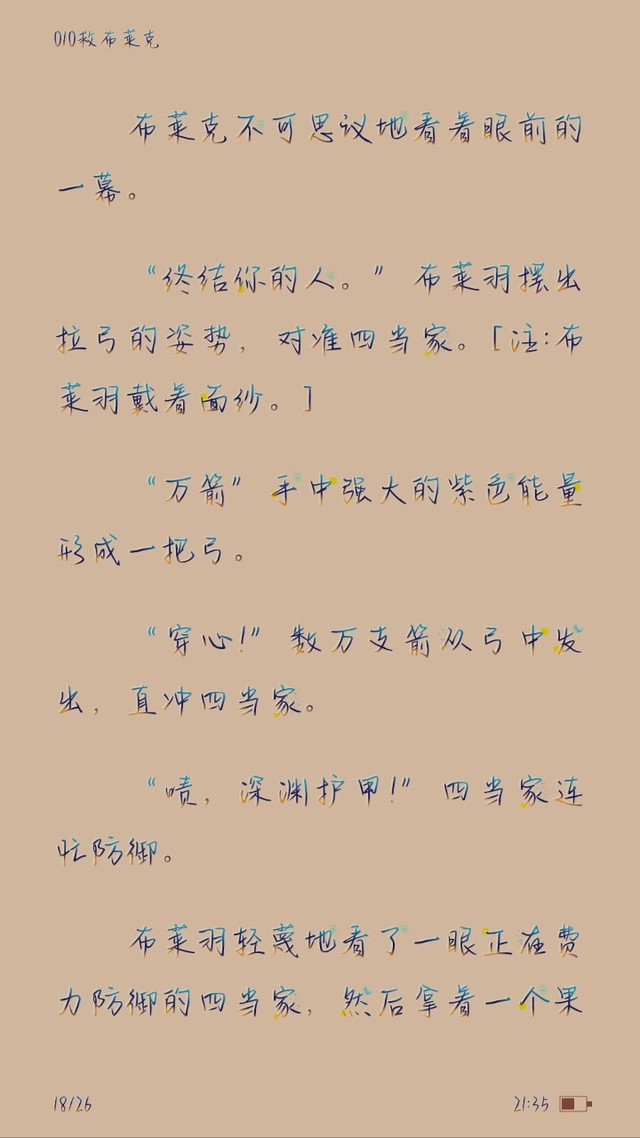 010救布莱克
布莱克不可思议地看着眼前的
一幕。
“终结你的人。”布莱羽摆出
拉弓的姿势，对准四当家。[注:布
莱羽戴着面纱。]
“万箭”手中强大的紫色能量
形成一把弓。
“穿心!”数万支箭从弓中发
出，直冲四当家。
“啧，深渊护甲!”四当家连
忙防御。
布莱羽轻蔑地看了一眼正在费
力防御的四当家，然后拿着一个果
18/26
21:35